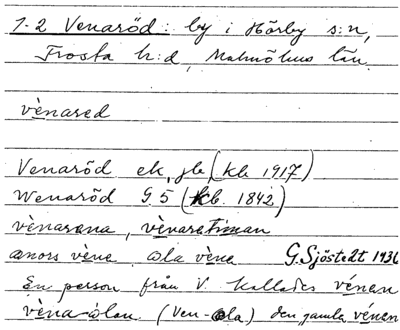 1-2 Venaröd: by i Hörby s:n,
Frosta h:d, Malmöhus län.
vènared
Venaröd ek, jb (kb 1917)
Wenaröd G5 (kb. 1842)
vènarana, vènaretiman
anors vène, ola vène G. Sjöstedt 1936
En person från V. kallades vénen
vèna-òlan. (Ven-ola) den gamle vénen